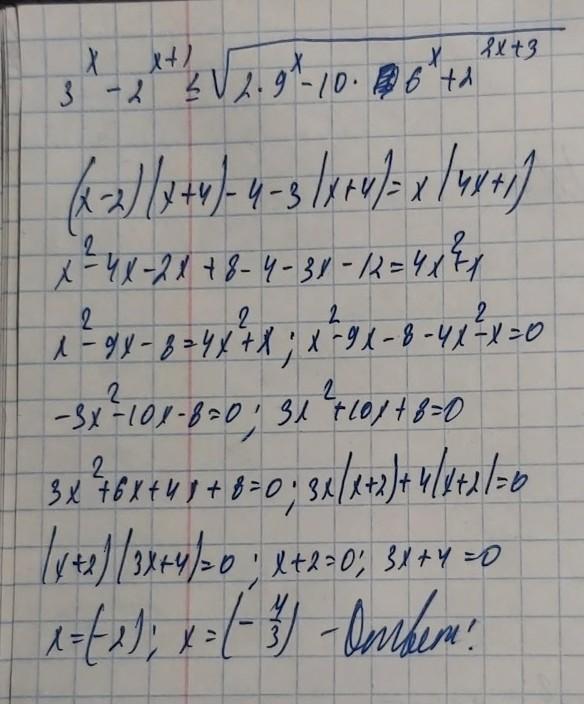 3^x - 2^(x+1) ≤ √(2·9^x - 10· 6^x + 2^(2x+3))
(x-2)(x+4)-4-3(x+4)=x(4x+1)
x²-4x-2x+8-4-3x-12=4x²+x
x²-9x-8=4x²+x; x²-9x-8-4x²-x=0
-3x²-10x-8=0; 3x²+10x+8=0
3x²+6x+4x+8=0; 3x(x+2)+4(x+2)=0
(x+2)(3x+4)=0; x+2=0; 3x+4=0
x=(-2); x=(-4/3) - Ответ!